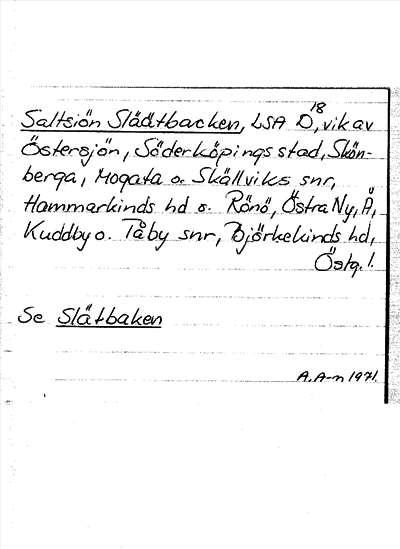 Saltsiön Slädtbacken, LSA D18, vik av
Östersjön, Söderköpings stad, Skön-
berga, Mogata o. Skällviks snr,
Hammarkinds hd o. Rönö, Östra Ny, Å,
Kuddby o. Tåby snr, Björkekinds hd,
Östg. l.
Se Slätbaken
A. A-n 1971